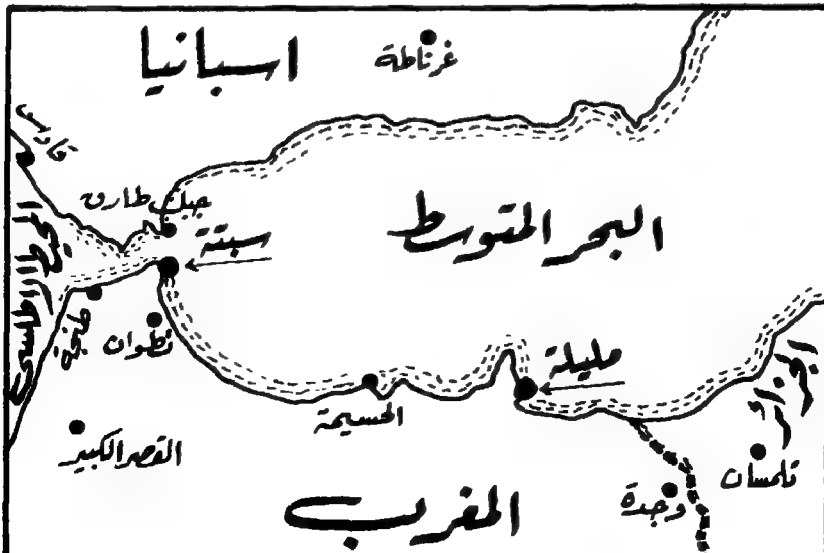 اسبانيا
غرناطة
قادس
جبل طارق
المحيط الاطلسي
سبتة
البحر المتوسط
طنجة
تطوان
مليلة
الجزائر
الحسيمة
القصر الكبير
تلمسان
وجدة
المغرب